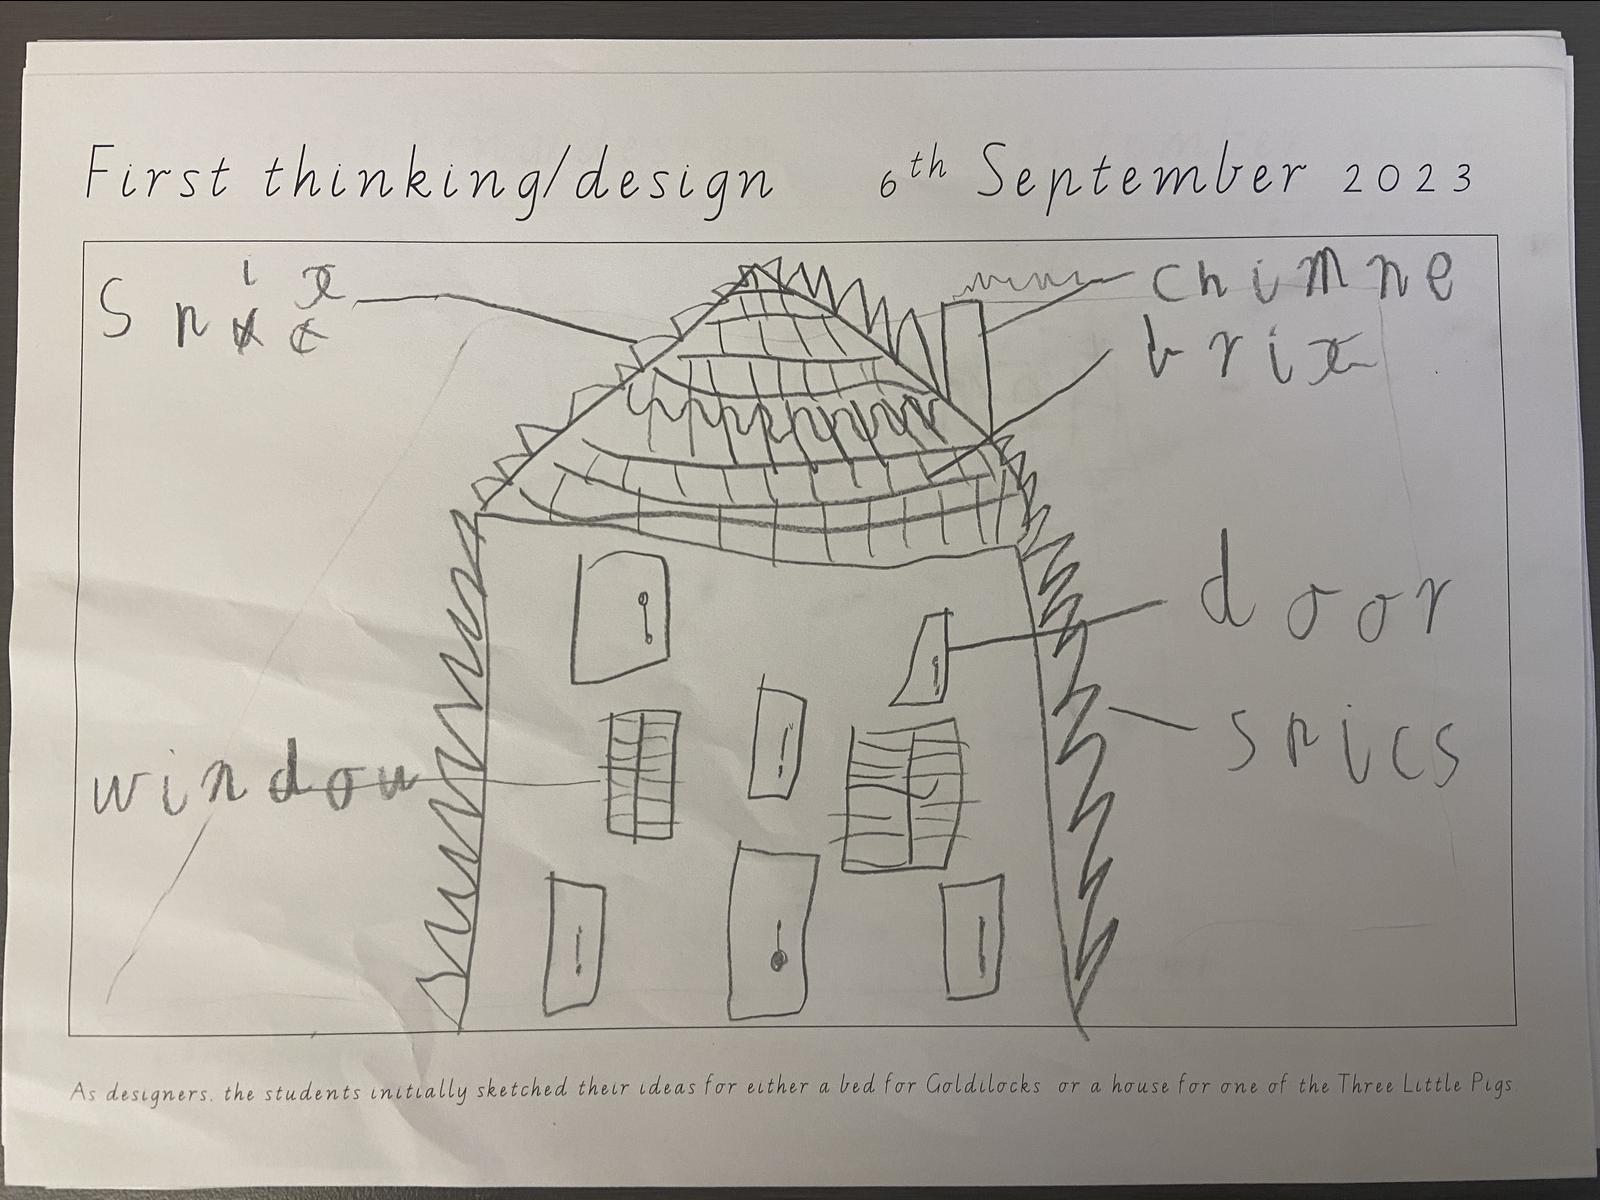 First thinking/design 6th September 2023
chimne
brix
door
spics
window
As designers, the students initially sketched their ideas for either a bed for Goldilocks or a house for one of the Three Little Pigs.